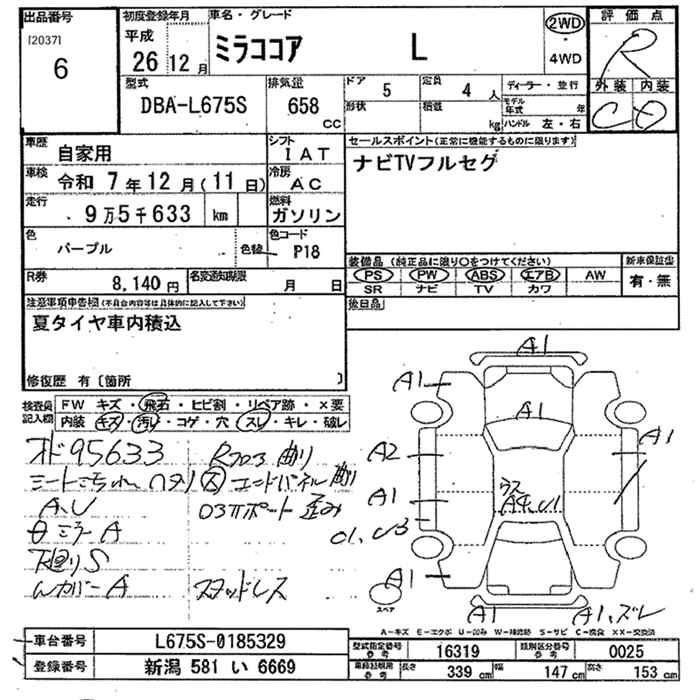 出品番号
[2037]
6
初度登録年月
平成
26 12 月
車名・グレード
ミラココア L
2WD
・
4WD
評価点
R
外装 内装
C D
型式
DBA-L675S
排気量
658
CC
ドア
5
定員
4 人
形状
積載
kg
ディーラー・並行
モデル年式 年
ハンドル 左・右
車歴
自家用
シフト
IAT
車検
令和 7年12月(11日)
冷房
AC
走行
9万5千633 km
燃料
ガソリン
色
パープル
色替
色コード
P18
R券
8,140 円
名変通知期限
月 日
セールスポイント(正常に機能するものに限ります)
ナビTVフルセグ
装備品(純正品に限り〇をつけてください)
PS PW ABS エアB AW
SR ナビ TV カワ
新車保証書
有・無
後日品
注意事項申告欄(不具合内容等は具体的に記入して下さい)
夏タイヤ車内積込
修復歴 有〔箇所 〕
検査員記入欄
FW キズ・飛石・ヒビ割・リペア跡・×要
内装 キズ・汚れ・コゲ・穴・スレ・キレ・破レ
オド95633
A、U
ミラー A
下廻りS
Wカバー A
スタッドレス
曲り
エンドパネル
歪み
A1
A1
A1
A1
A2
A1
A1
A1
A1
A1、ズレ
スペア
A=キズ E=エクボ U=凹み W=補修跡 S=サビ C=腐食 XX=交換済
車台番号
L675S-0185329
登録番号
新潟 581 い 6669
型式指定番号
参考
16319
類別区分番号
参考
0025
車検証明用
参考
長さ
339 cm
幅
147 cm
高さ
153 cm